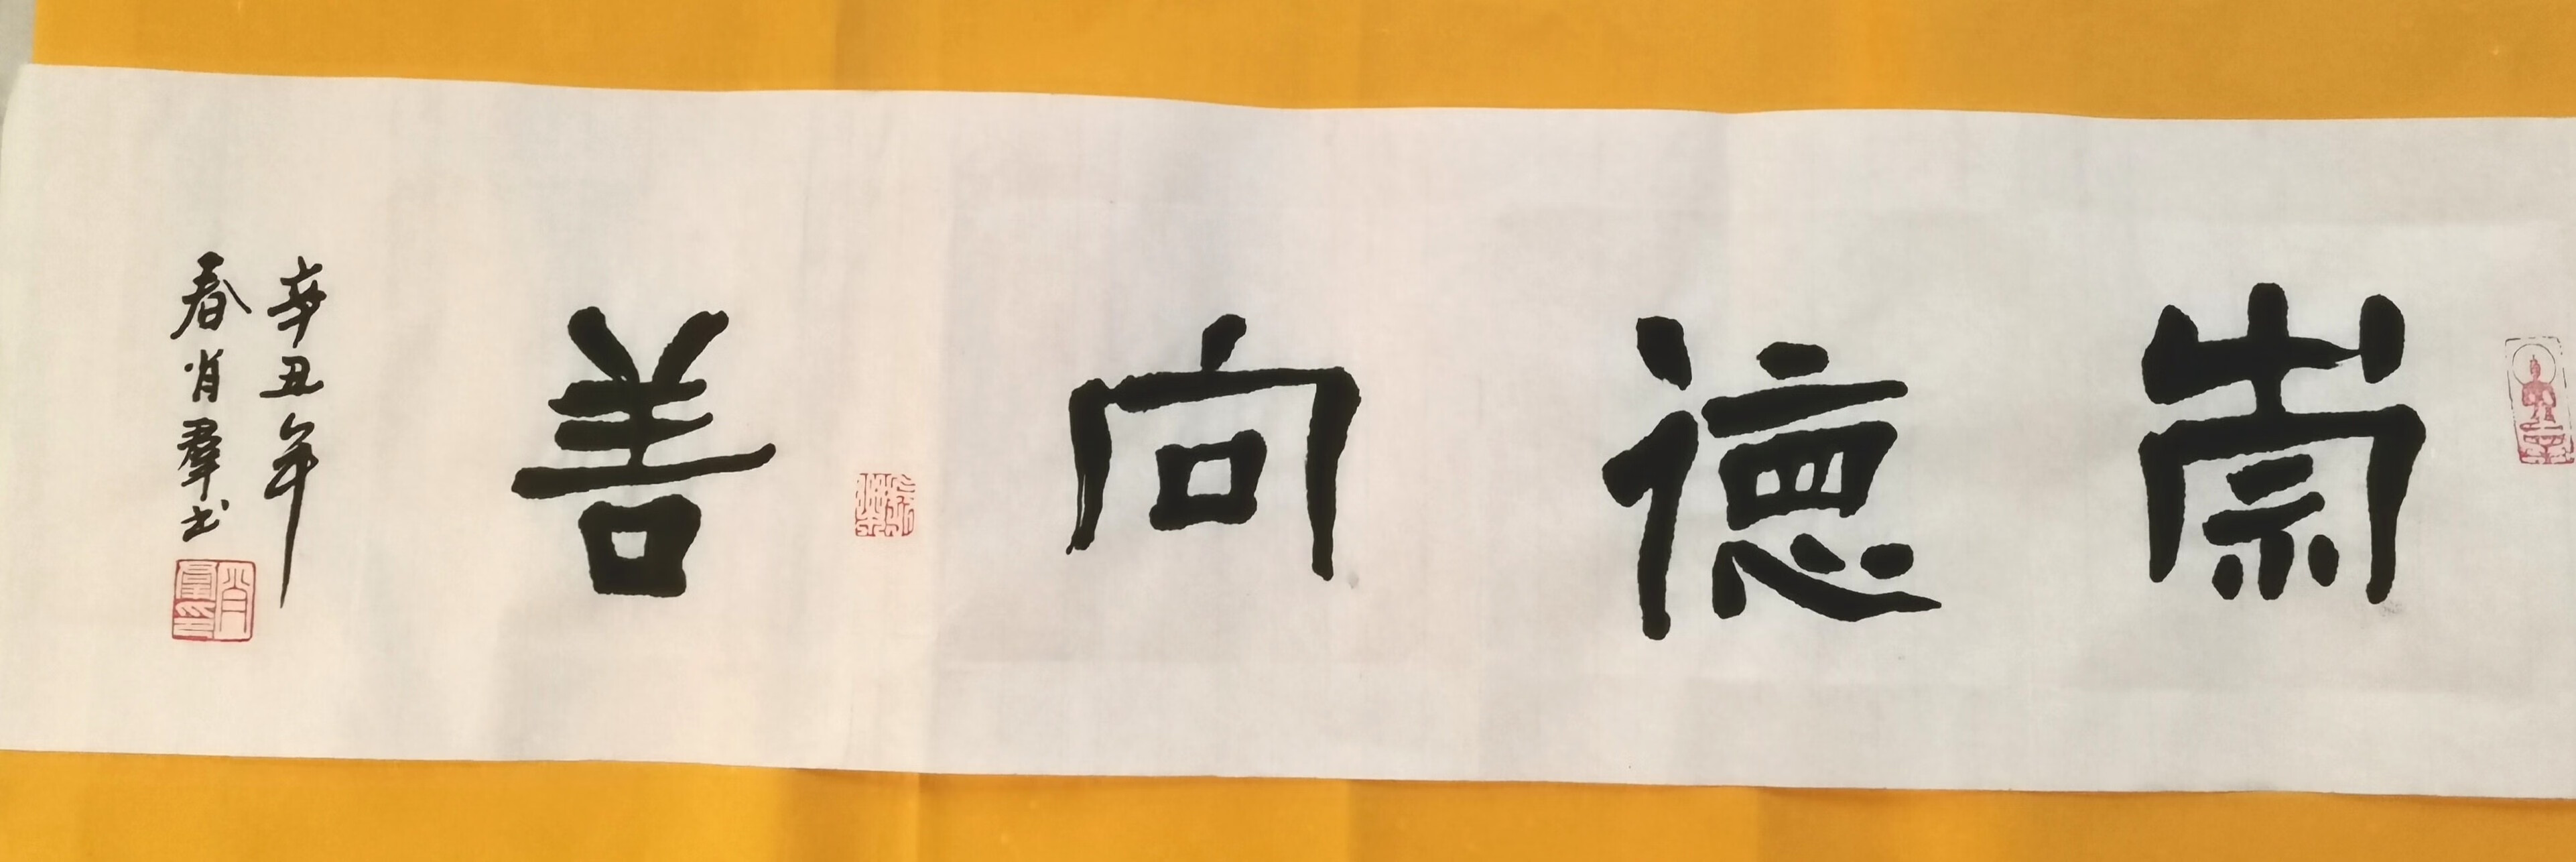 崇德向善
辛丑年
春肖羣书